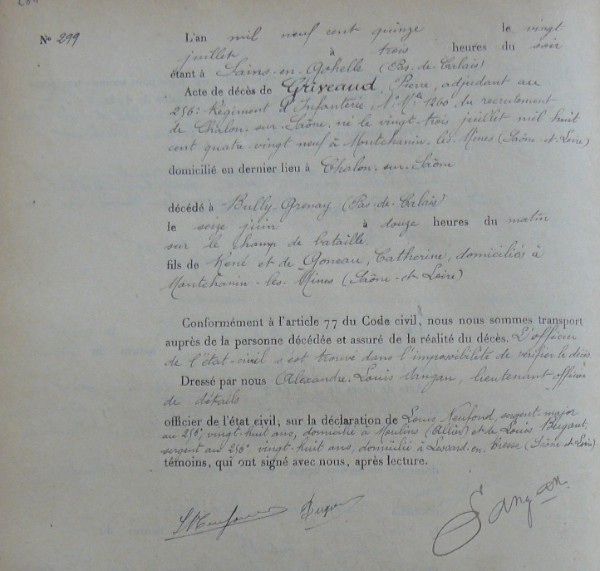 N° 299
L'an mil neuf cent quinze le vingt
juillet à trois heures du soir
étant à Sains-en-Gohelle (Pas-de-Calais)
Acte de décès de Griveaud, Pierre, adjudant au
256e Régiment d'Infanterie, N° Mle 1260 du recrutement
de Châlon-sur-Saône, né le vingt-trois juillet mil huit
cent quatre vingt neuf à Montchanin-les-Mines (Saône-et-Loire)
domicilié en dernier lieu à Chalon-sur-Saône
décédé à Bully-Grenay (Pas-de-Calais)
le seize juin à douze heures du matin
sur le champ de bataille
fils de René et de Goneau, Catherine, domiciliés à
Montchanin-les-Mines (Saône-et-Loire)
Conformément à l'article 77 du Code civil, nous nous sommes transport
auprès de la personne décédée et assuré de la réalité du décès. L'officier
de l'état-civil s'est trouvé dans l'impossibilité de vérifier le décès
Dressé par nous Alexandre Louis Sangan, lieutenant officier
de détails
officier de l'état civil, sur la déclaration de Louis sergent-major
au 256e, vingt-huit ans, domicilié à Moulins (Allier) et de Louis
sergent au 256e vingt-huit ans, domicilié à en-Bresse (Saône-et-Loire)
témoins, qui ont signé avec nous, après lecture.
Sangan